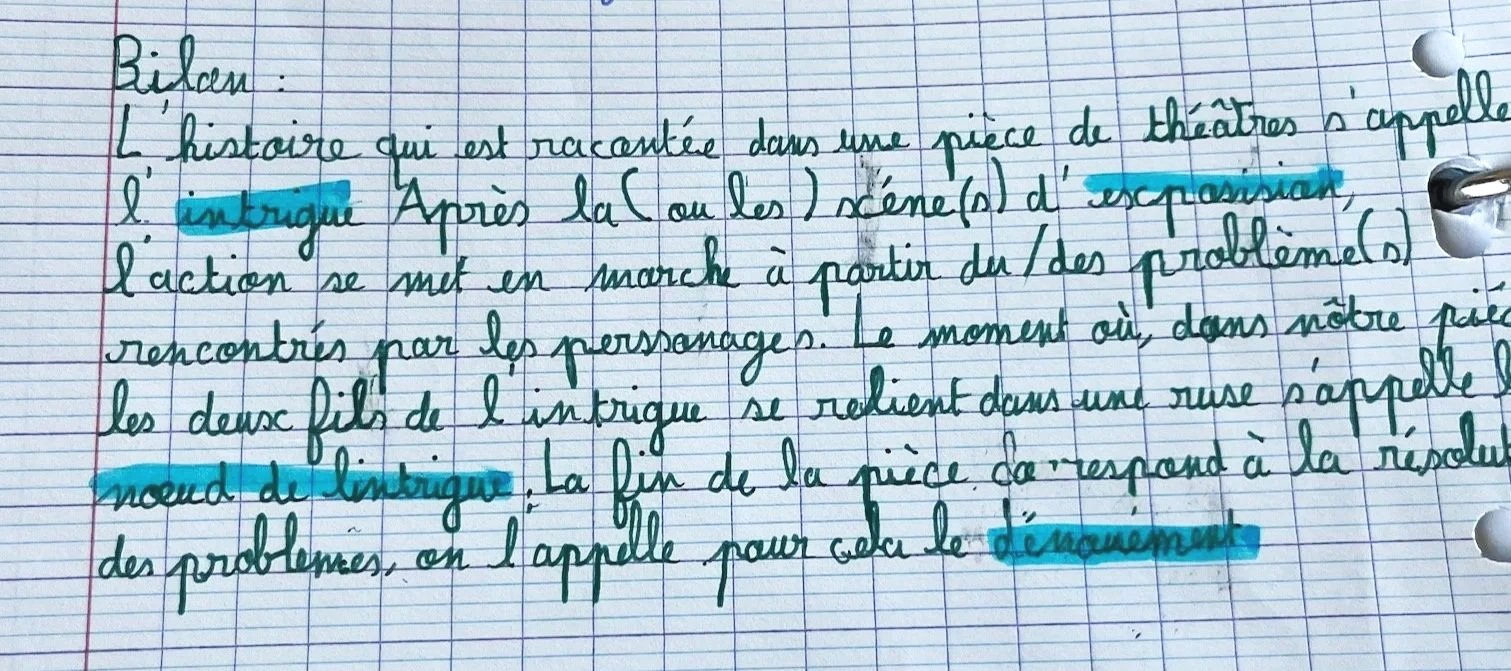 Bilan :
L'histoire qui est racontée dans une pièce de théâtres s'appelle
l'intrigue Après la (ou les) scéne(s) d'exposision,
l'action se met en marche à partir du/des problème(s)
rencontrés par les personages. Le moment où, dans nôtre piéc
les deux fils de l'intrigue se relient dans une ruse s'appelle l
noeud de lintrigue. La fin de la pièce correspond à la résolut
des problemes, on l'appelle pour cela le dénouement